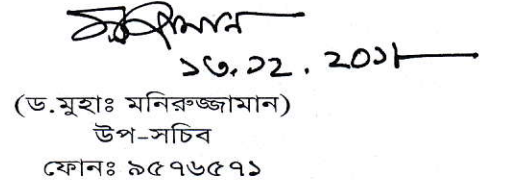 ১৩.১২.২০১৮
(ড.মুহাঃ মনিরুজ্জামান)
উপ-সচিব
ফোনঃ ৯৫৭৬৫৭১